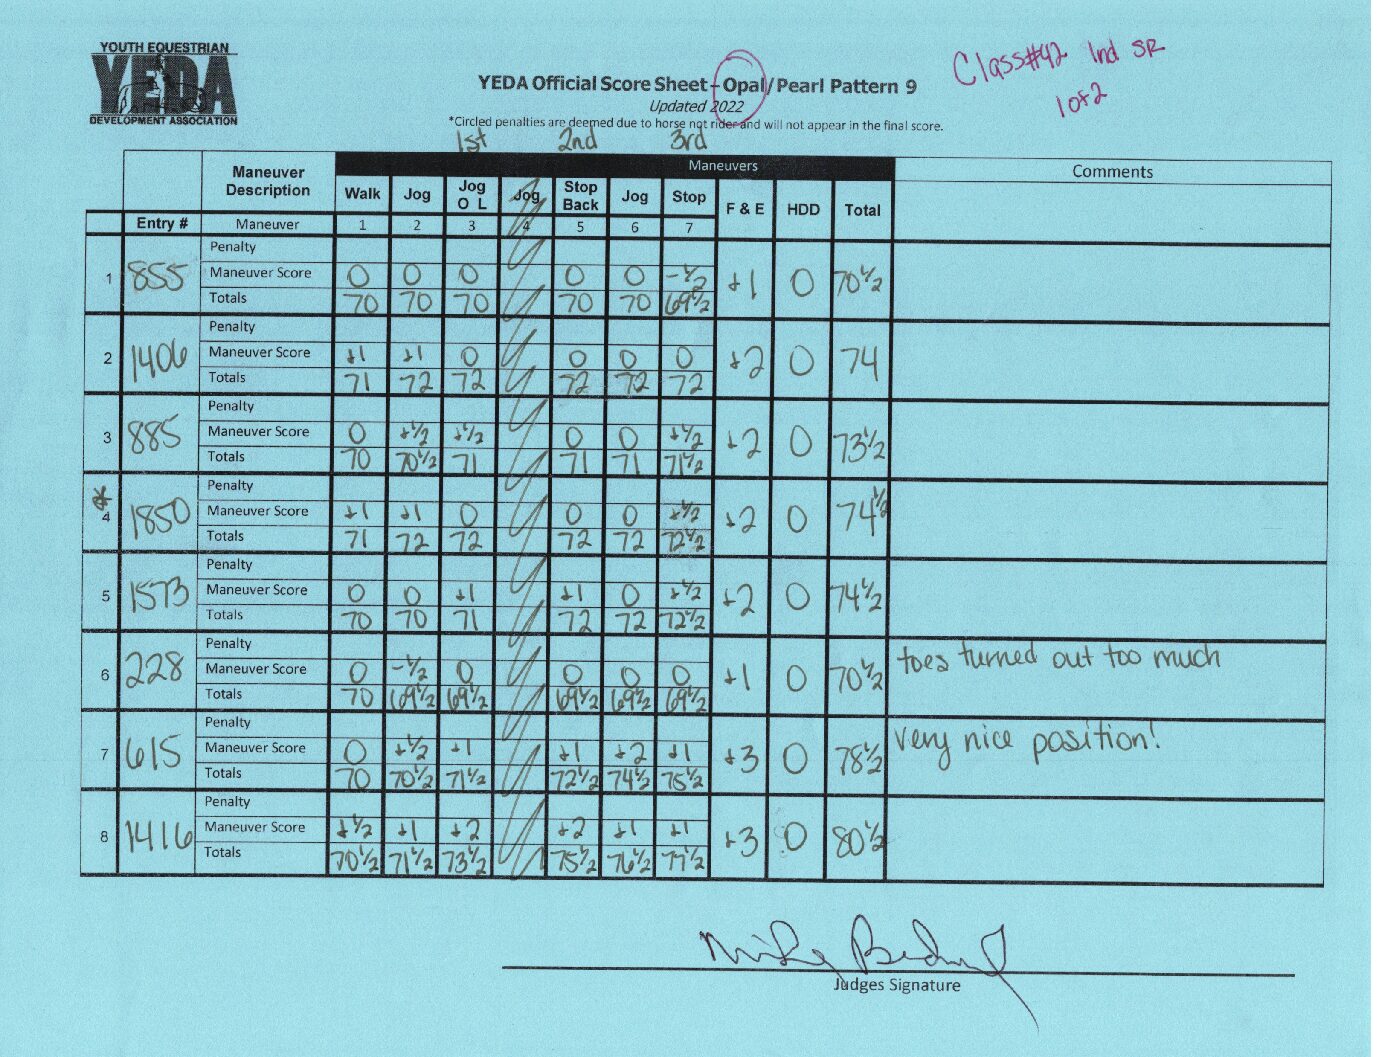 YOUTH EQUESTRIAN
YEDA
DEVELOPMENT ASSOCIATION
Class#42 Ind SR
1 of 2
YEDA Official Score Sheet – Opal/Pearl Pattern 9
Updated 2022
*Circled penalties are deemed due to horse not rider and will not appear in the final score.
1st 2nd 3rd
Maneuver Description Maneuvers Comments
Walk Jog Jog O L Jog Stop Back Jog Stop F & E HDD Total
Entry # Maneuver 1 2 3 4 5 6 7
Penalty
1 855 Maneuver Score 0 0 0 0 0 -1/2 +1 0 70 1/2
Totals 70 70 70 70 70 69 1/2
Penalty
2 1406 Maneuver Score +1 +1 0 0 0 0 +2 0 74
Totals 71 72 72 72 72 72
Penalty
3 885 Maneuver Score 0 +1/2 +1/2 0 0 +1/2 +2 0 73 1/2
Totals 70 70 1/2 71 71 71 71 1/2
Penalty
* 4 1850 Maneuver Score +1 +1 0 0 0 +1/2 +2 0 74 1/2
Totals 71 72 72 72 72 72 1/2
Penalty
5 1573 Maneuver Score 0 0 +1 +1 0 +1/2 +2 0 74 1/2
Totals 70 70 71 72 72 72 1/2
Penalty
6 228 Maneuver Score 0 -1/2 0 0 0 0 +1 0 70 1/2 toes turned out too much
Totals 70 69 1/2 69 1/2 69 1/2 69 1/2 69 1/2
Penalty
7 615 Maneuver Score 0 +1/2 +1 +1 +2 +1 +3 0 78 1/2 very nice position!
Totals 70 70 1/2 71 1/2 72 1/2 74 1/2 75 1/2
Penalty
8 1416 Maneuver Score +1/2 +1 +2 +2 +1 +1 +3 0 80 1/2
Totals 70 1/2 71 1/2 73 1/2 75 1/2 76 1/2 77 1/2
Judges Signature